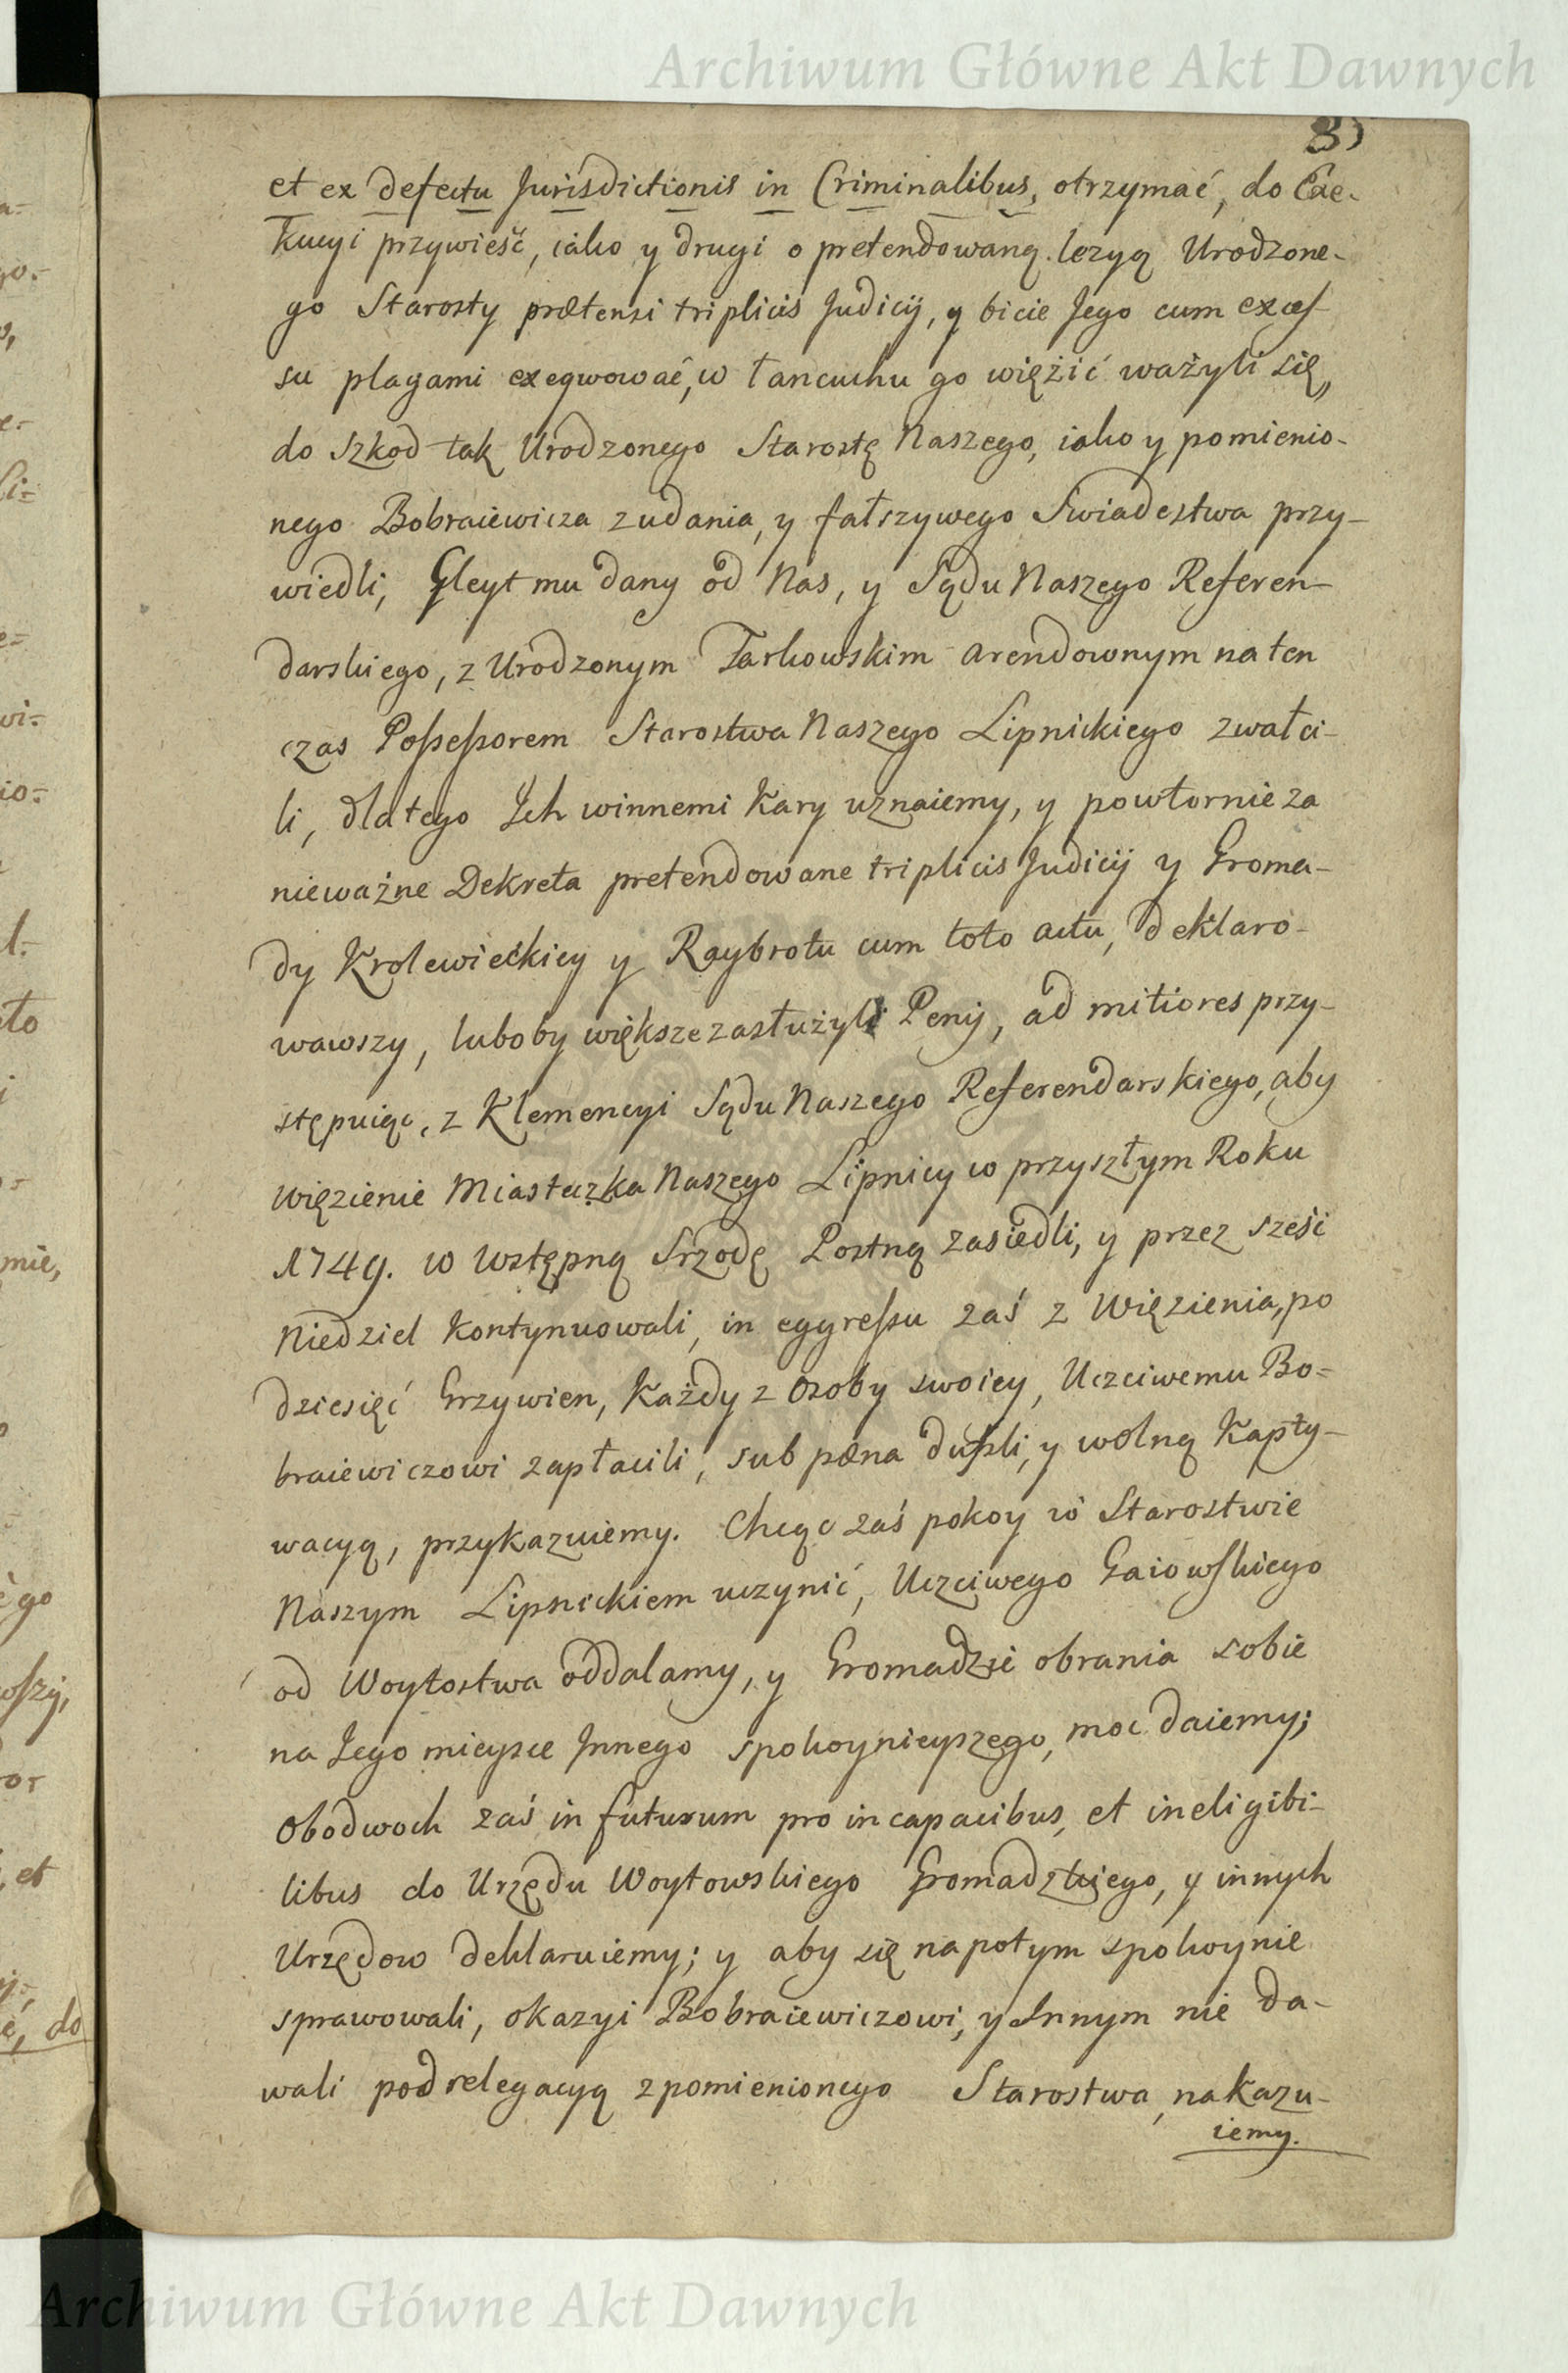 Archiwum Główne Akt Dawnych
et ex defectu Jurisdictionis in Criminalibus, otrzymać, do Exe-
kucyi przywieść, iako y drugi o pretendowaną lezyą Urodzone-
go Starosty prætensi triplicis Judicij, y bicie Jego cum exces-
su plagami exeqwować, w łancuchu go więżić ważyli się,
do szkod tak Urodzonego Starostę Naszego, iako y pomienio-
nego Bobraiewicza zudania, y fałszywego Swiadectwa przy-
wiedli, Gleyt mu dany od Nas, y Sądu Naszego Referen-
darskiego, z Urodzonym Tarkowskim arendownym na ten
czas Possessorem Starostwa Naszego Lipnickiego zwałci-
li, dlatego Ich winnemi Kary uznaiemy, y powtornie za
nieważne Dekreta pretendowane triplicis Judicij y Groma-
dy Krolewieckiey y Raybrotu cum toto actu, deklaro-
wawszy, luboby większe zasłużyli Penij, ad mitiores przy-
stępuiąc, z Klemencyi Sądu Naszego Referendarskiego, aby
więzienie Miasteczka Naszego Lipnicy w przyszłym Roku
1749. w Wstępną Srzodę Postną zasiedli, y przez sześć
Niedziel kontynuowali, in egressu zaś z Więzienia, po
dziesięć Grzywien, Każdy z Osoby swoiey, Uczciwemu Bo-
braiewiczowi zapłacili, sub pœna dupli, y wolną Kapty-
wacyą, przykazuiemy. Chcąc zaś pokoy w Starostwie
Naszym Lipnickiem uczynić, Uczciwego Gaiowskiego
od Woytostwa oddalamy, y Gromadzie obrania sobie
na Jego mieysce Innego spokoynieyszego, moc daiemy;
Obodwoch zaś in futurum pro incapacibus, et ineligibi-
libus do Urzędu Woytowskiego Gromadzkiego, y innych
Urzędow deklaruiemy; y aby się napotym spokoynie
sprawowali, okazyi Bobraiewiczowi, y Innym nie da-
wali pod relegacyą z pomienionego Starostwa, nakazu-
iemy.
Archiwum Główne Akt Dawnych